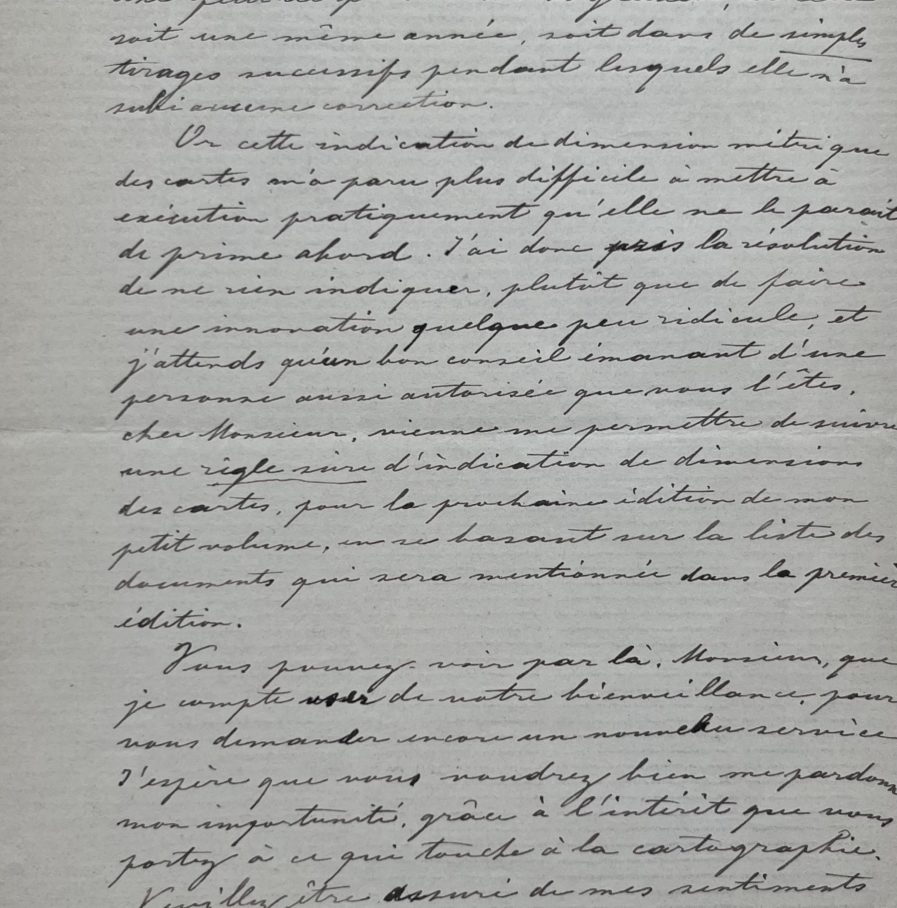 soit une même année, soit dans de simples
tirages successifs pendant lesquels elle n'a
subi aucune correction.
Or cette indication de dimension métrique
des cartes m'a paru plus difficile à mettre à
exécution pratiquement qu'elle ne le parait
de prime abord. J'ai donc pris la résolution
de ne rien indiquer, plutôt que de faire
une innovation quelque peu ridicule, et
j'attends qu'un bon conseil émanant d'une
personne aussi autorisée que vous l'êtes,
cher Monsieur, vienne me permettre de suivre
une règle sûre d'indication de dimensions
des cartes, pour la prochaine édition de mon
petit volume, en se basant sur la liste des
documents qui sera mentionnée dans la première
édition.
Vous pouvez voir par là, Monsieur, que
je compte user de votre bienveillance, pour
vous demander encore un nouveau service
J'espère que vous voudrez bien me pardonner
mon importunité, grâce à l'intérêt que vous
portez à ce qui touche à la cartographie.
Veuillez être assuré de mes sentiments